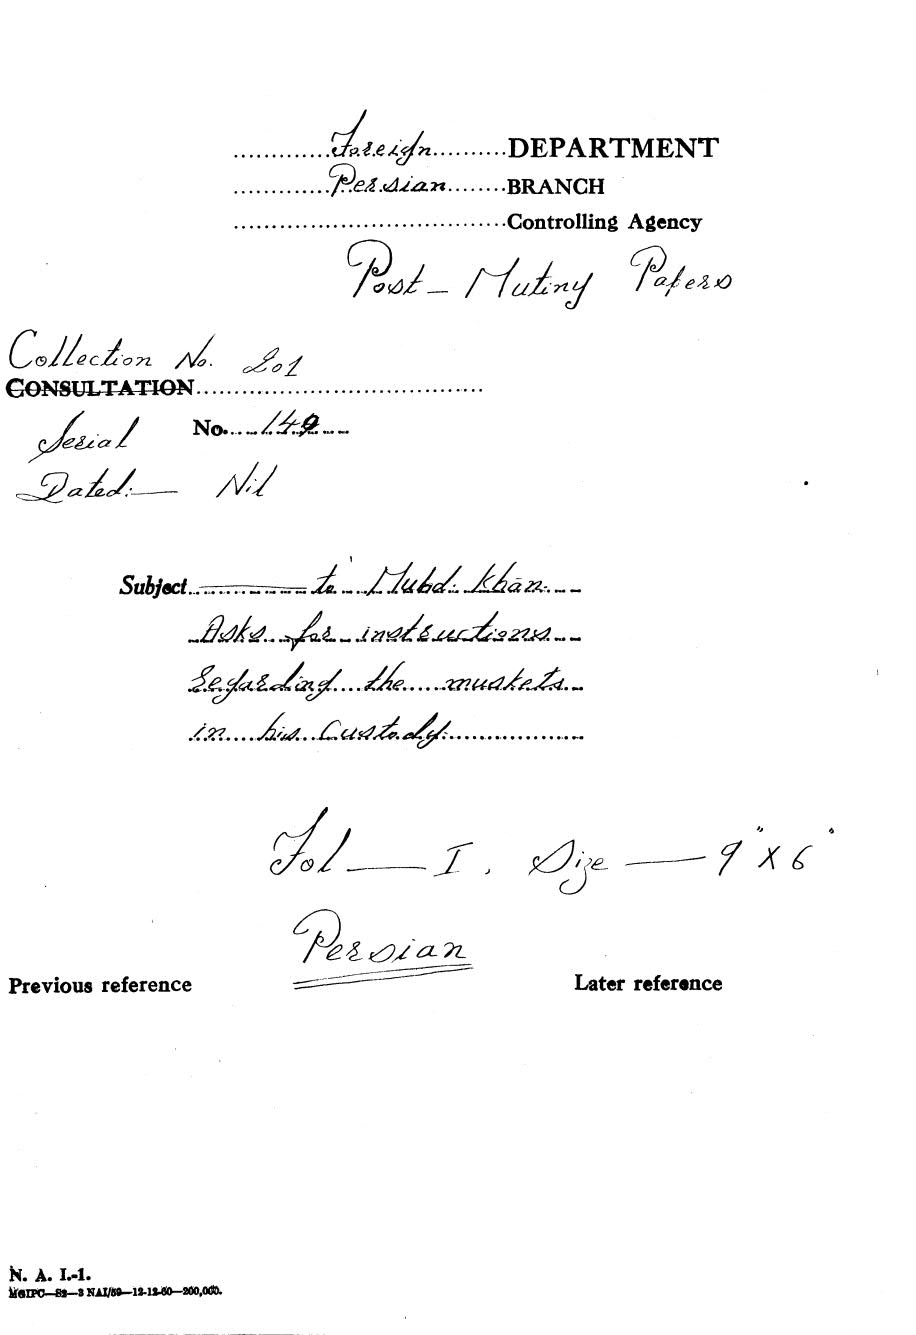 Foreign DEPARTMENT
Persian BRANCH
Controlling Agency
Post - Mutiny Papers
Collection No. 201
CONSULTATION
Serial No. 149
Dated:— Nil
Subject ——— to Muhd. Khān.
Asks for instructions
regarding the muskets
in his Custody.
Fol — I, Size — 9" X 6"
Persian
Previous reference Later reference
N. A. I.-1.
MGIPC—S2—3 NAI/59—12-12-60—200,000.